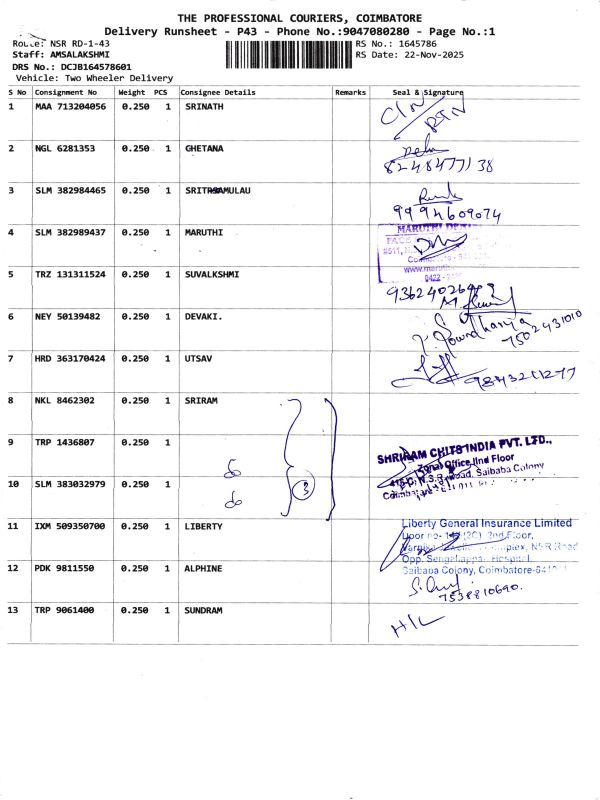 THE PROFESSIONAL COURIERS, COIMBATORE
Delivery Runsheet - P43 - Phone No.:9047080280 - Page No.:1
Route: NSR RD-1-43 RS No.: 1645786
Staff: AMSALAKSHMI RS Date: 22-Nov-2025
DRS No.: DCJB164578601
Vehicle: Two Wheeler Delivery
S No Consignment No Weight PCS Consignee Details Remarks Seal & Signature
1 MAA 713204056 0.250 1 SRINATH
2 NGL 6281353 0.250 1 GHETANA
8248477138
3 SLM 382984465 0.250 1
9994609074
4 SLM 382989437 0.250 1 MARUTHI
MARUTHI
5 TRZ 131311524 0.250 1 SUVALKSHMI
6 NEY 50139482 0.250 1 DEVAKI.
7502431010
7 HRD 363170424 0.250 1 UTSAV
8 NKL 8462302 0.250 1 SRIRAM
9 TRP 1436807 0.250 1
SHRIRAM CHITS INDIA PVT. LTD.,
Zonal Office IInd Floor
N.S.R. Road, Saibaba Colony
10 SLM 383032979 0.250 1
3
11 IXM 509350700 0.250 1 LIBERTY
Liberty General Insurance Limited
2nd Floor,
Complex, NSR Road
Opp. Hospital,
Saibaba Colony, Coimbatore-
12 PDK 9811550 0.250 1 ALPHINE
7538810690.
13 TRP 9061400 0.250 1 SUNDRAM